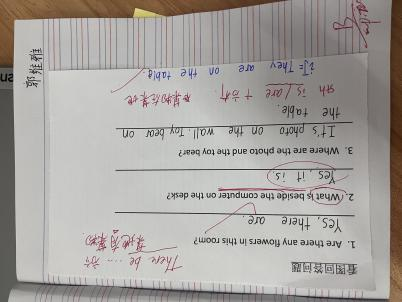 看图回答问题
There be ... 方
某地有某物
1. Are there any flowers in this room?
Yes, there are.
2. What is beside the computer on the desk?
Yes, it is
3. Where are the photo and the toy bear?
It's photo on the wall. Toy bear on
the table.
sth is / are + 方
某物在某地
They are on the table.